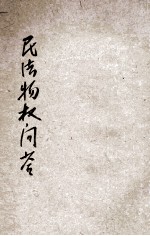 民法物权问答